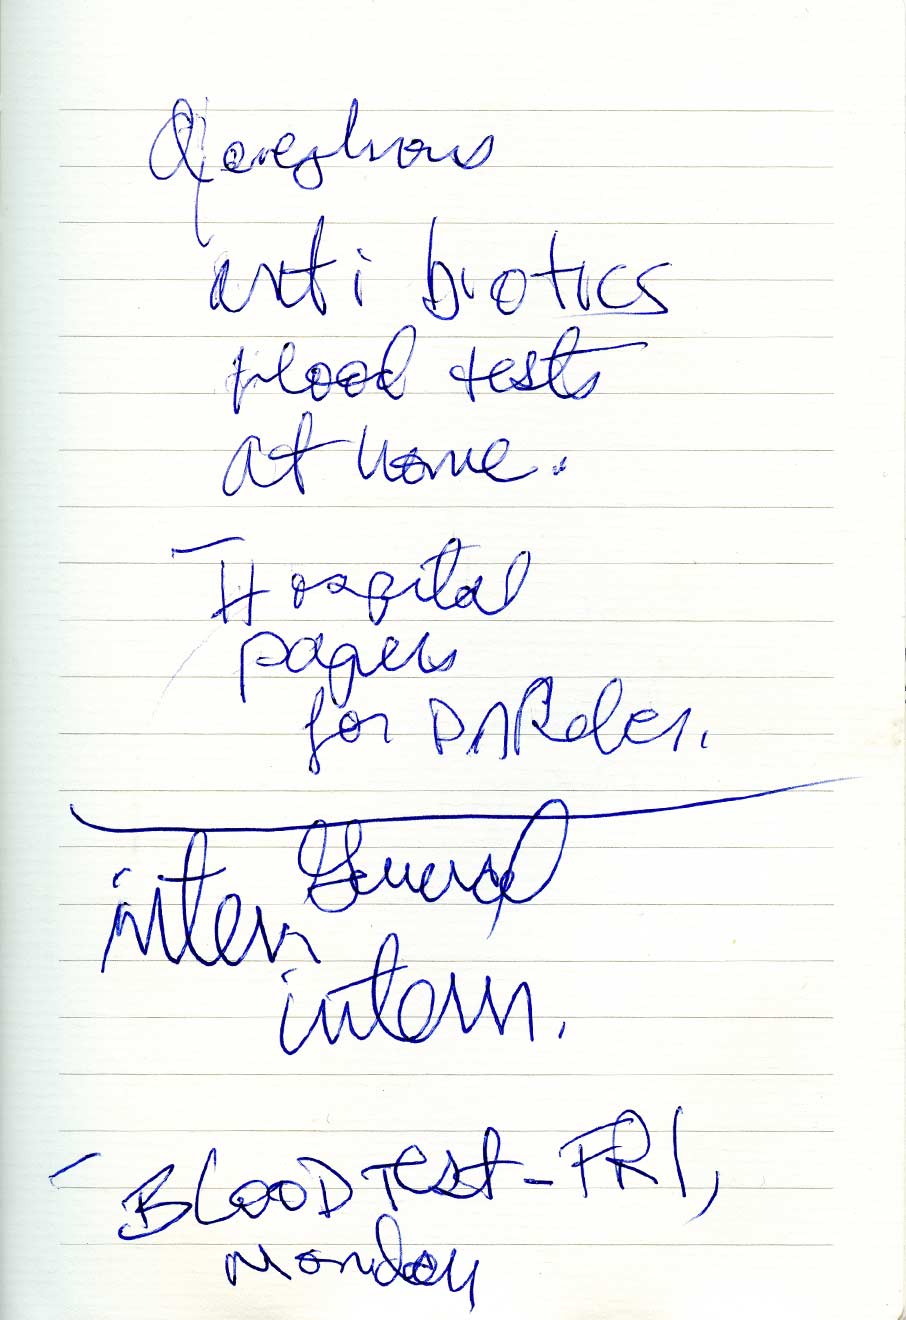 Questions
anti biotics
blood tests
at home.
- Hospital
papers
for DARder.
General
intern
intern.
- BLOOD Test - FRI,
Monday